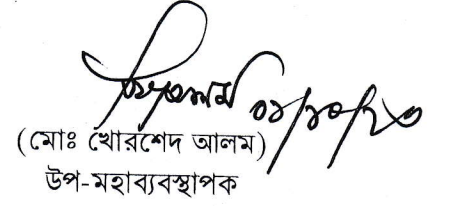 ০১/১০/২৩
(মোঃ খোরশেদ আলম)
উপ-মহাব্যবস্থাপক